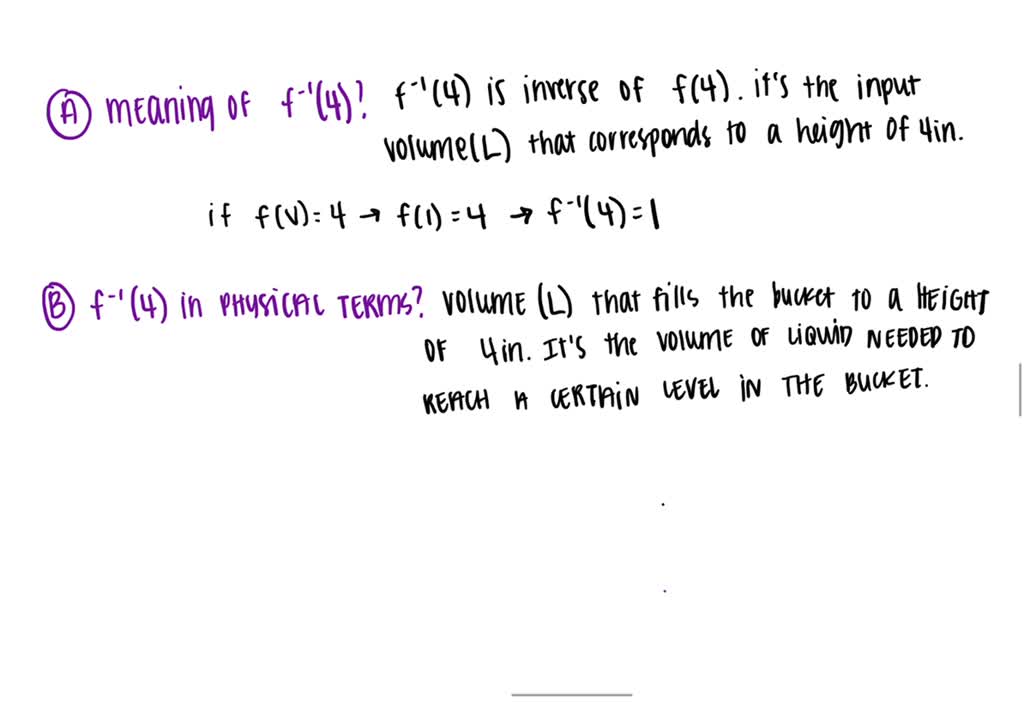 A meaning of f⁻¹(4)? f⁻¹(4) is inverse of f(4). it's the input
volume(L) that corresponds to a height of 4in.
if f(v)=4 → f(1)=4 → f⁻¹(4)=1
B f⁻¹(4) in PHYSICAL TERMS? VOLUME (L) that fills the bucket to a HEIGHT
OF 4in. It's the VOLUME OF LIQUID NEEDED TO
REACH A CERTAIN LEVEL IN THE BUCKET.